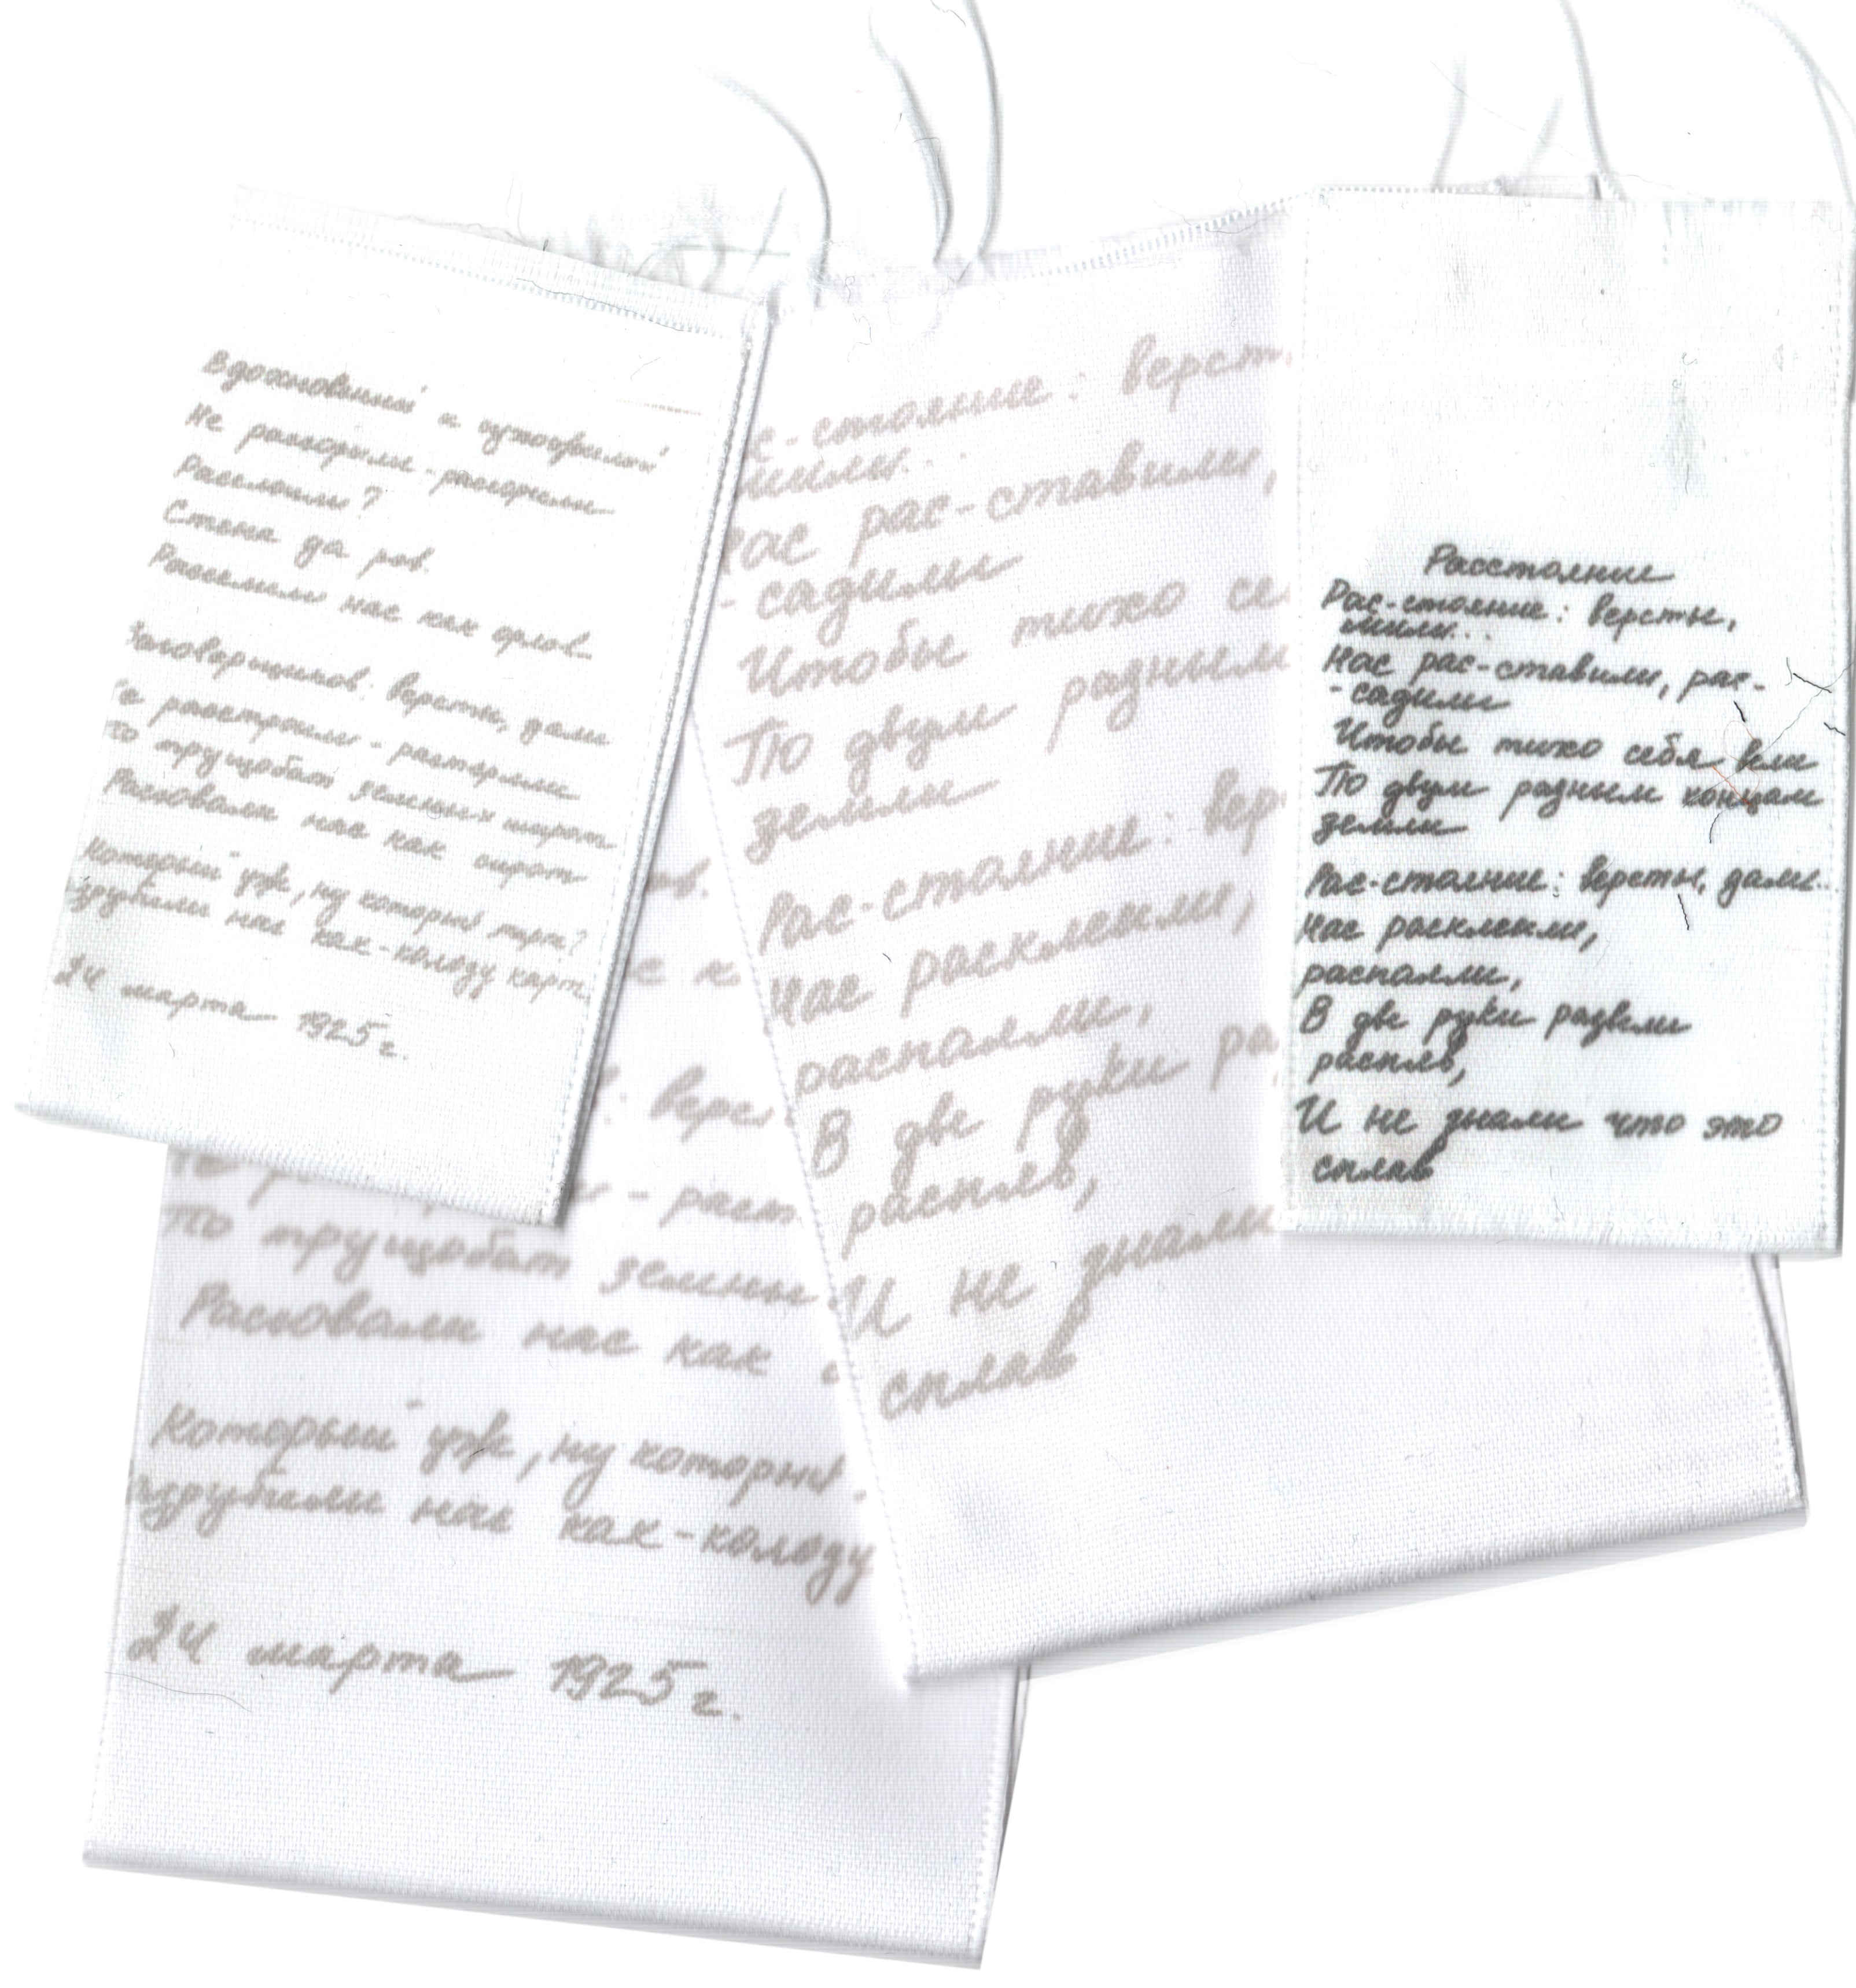 Вдохновений и сухожилий
Не рассорили - рассорили
Расслоили?
Стена да ров.
Расселили нас как орлов.
Заговорщиков: версты, дали
Не расстроили - растеряли
По трущобам земных широт
Расовали нас как сирот
Который уж, ну который март?
Разрубили нас как-колоду карт
24 марта 1925 г.
ов.
: верс
- раст
По трущобам земных
Расовали нас как с
Который уж, ну который
Разрубили нас как-колоду
24 марта 1925 г.
с-стояние: верст
мили...
Нас рас-ставили,
-садили
Чтобы тихо се
По двум разным
земли
Рас-стояние: вер
Нас расклеили,
распаяли,
В две руки ра
распяв,
И не знали
сплав
Расстояние
Рас-стояние: версты,
мили...
Нас рас-ставили, рас-
-садили
Чтобы тихо себя вели
По двум разным концам
земли
Рас-стояние: версты, дали...
Нас расклеили,
распаяли,
В две руки развели
распяв,
И не знали что это
сплав